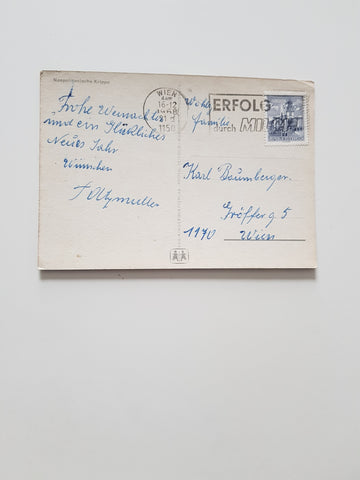 Neapolitanische Krippe
Frohe Weinachten
und ein Glückliches
Neues Jahr
Wünschen
WIEN
16-12
1150
ERFOLG
durch
Wohlg
Familie
Karl Baumberger
Gröfferg 5
1170 Wien